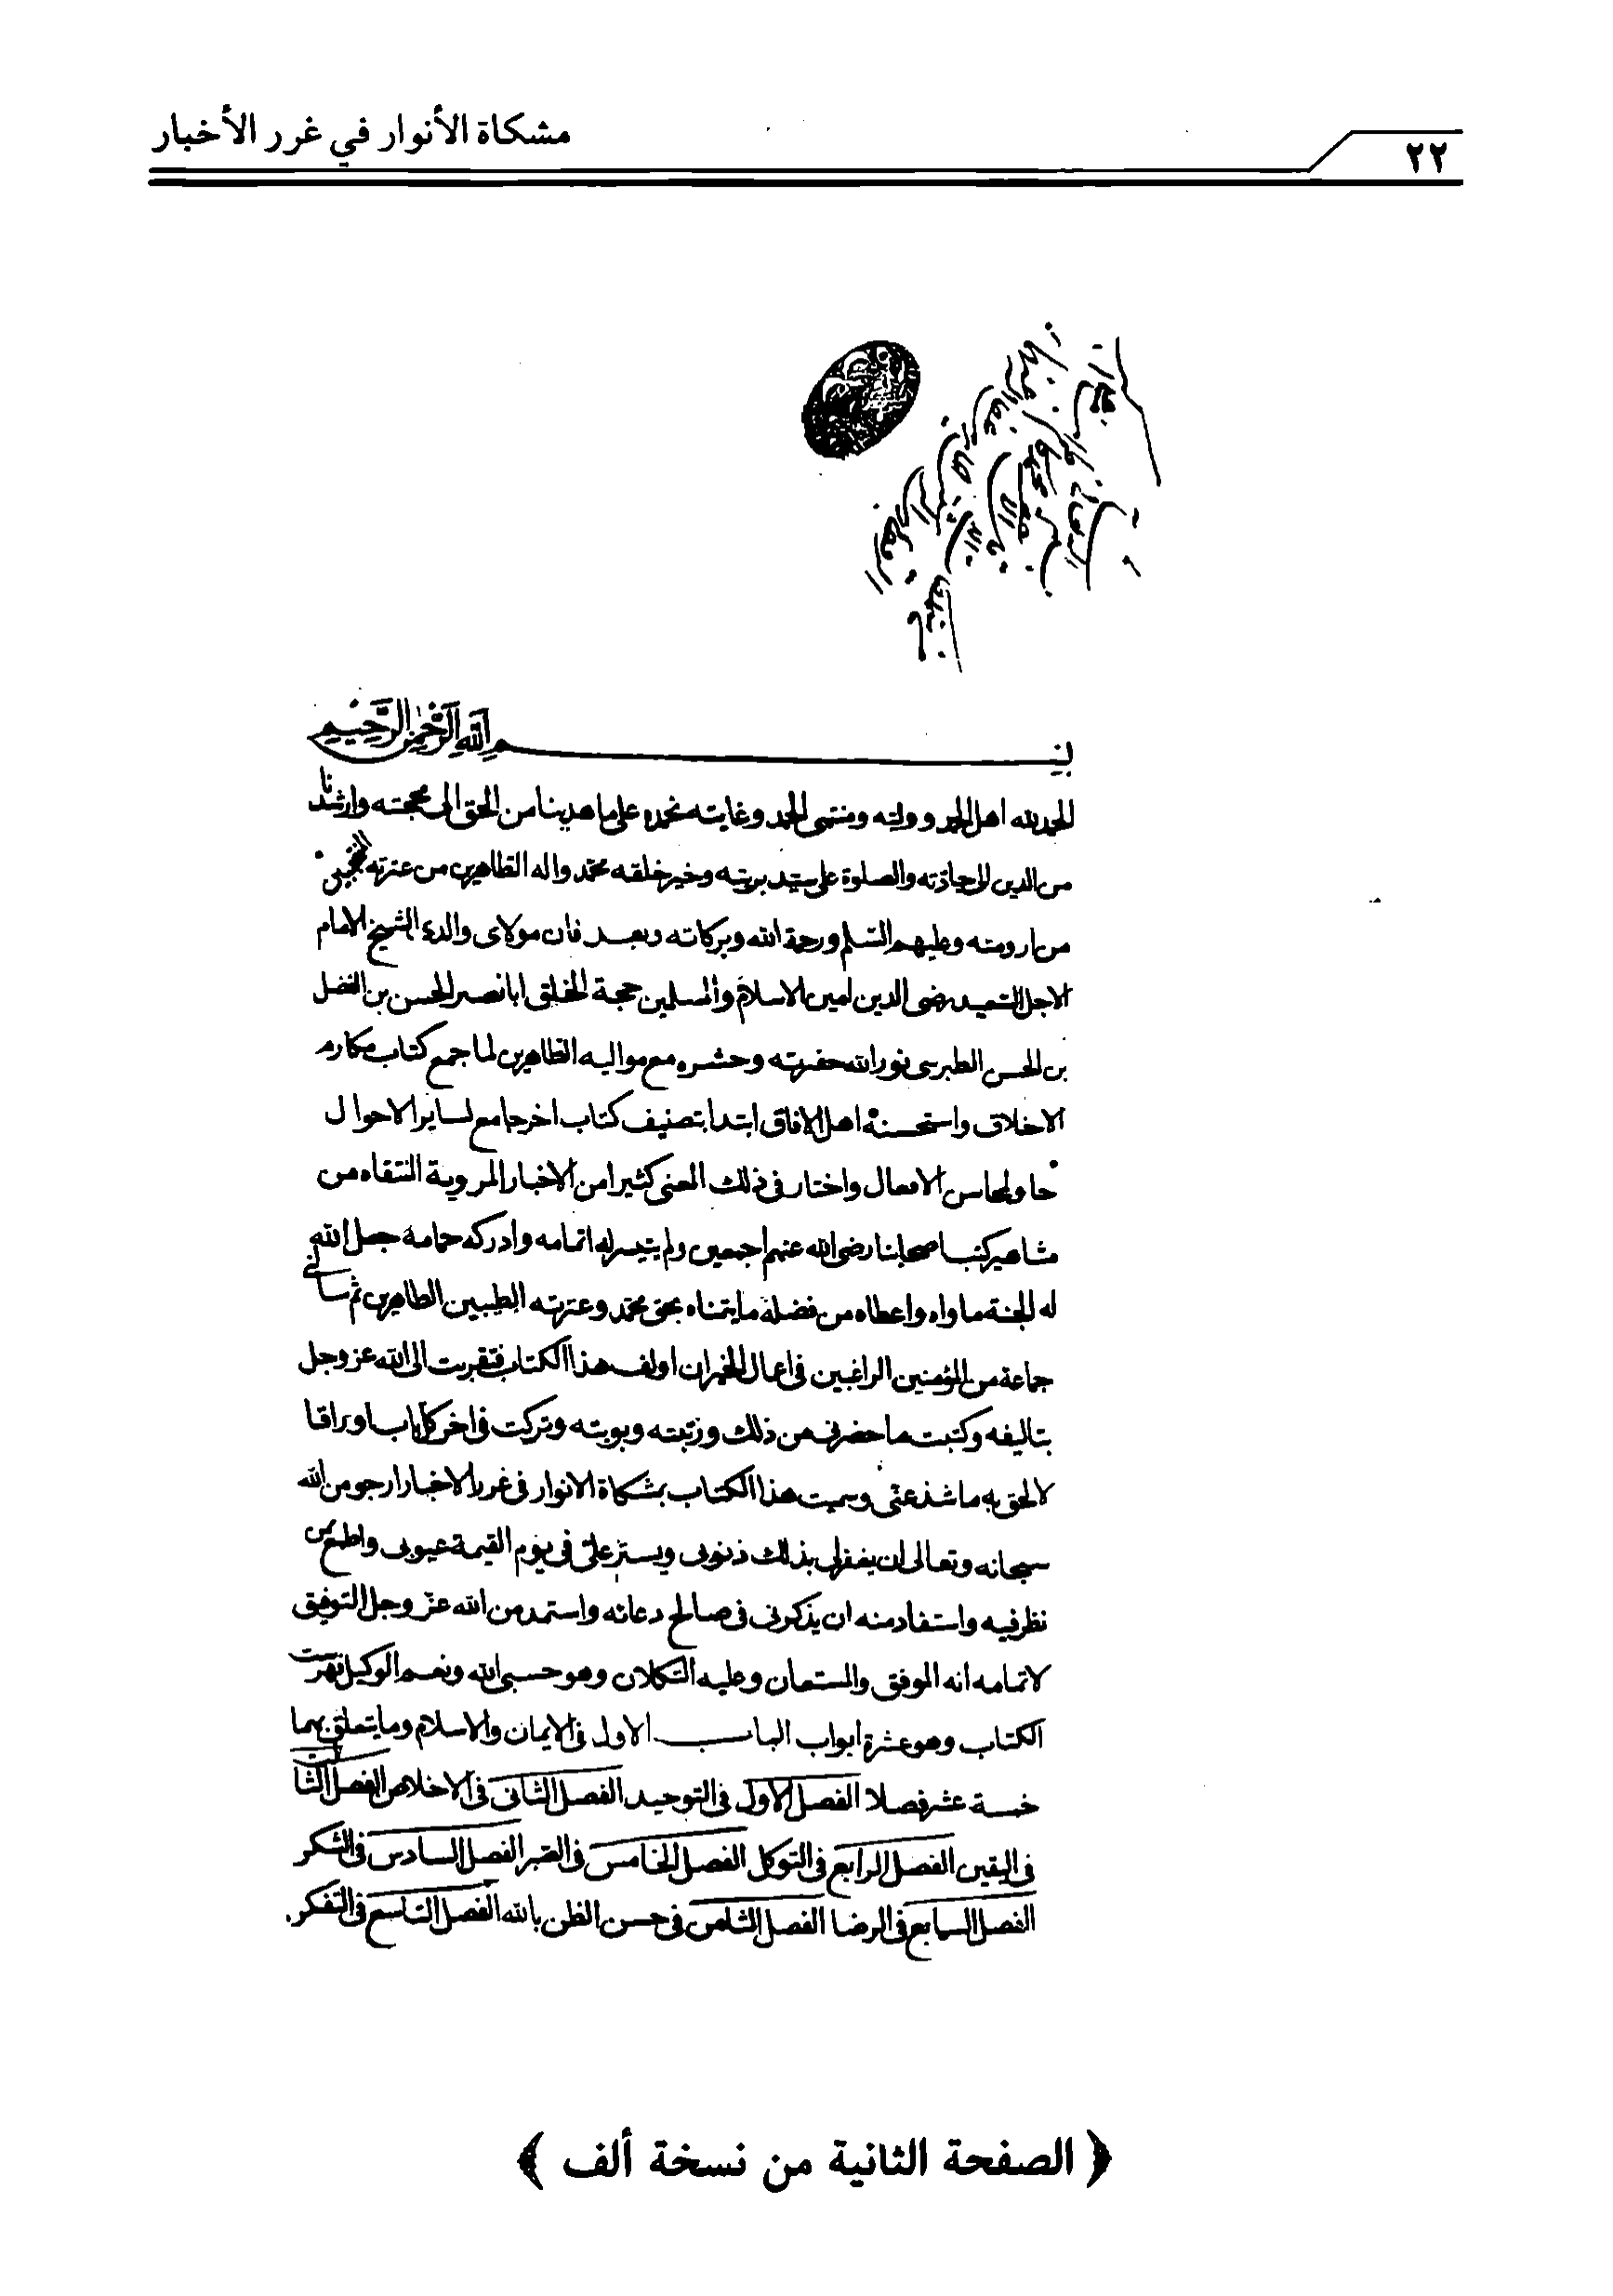 ٢٢
مشكاة الأنوار في غرر الأخبار
بسم الله الرحمن الرحيم
الحمد لله اهل الحمد ووليه ومنتهى الحمد وغايته نحمده على ما هدينا من الحق الى محجته وارشدنا
من الدين الى جادته والصلوة على سيد بريته وخير خلقه محمد واله الطاهرين من عترته المنتجبين
من ارومته وعليهم السلم ورحمة الله وبركاته وبعد فان مولاى والدى الشيخ الامام
الاجل السعيد رضى الدين امين الاسلام والمسلمين حجة الخلق ابا نصر الحسن بن الفضل
بن الحسن الطبرسى نور الله حفرته وحشره مع مواليه الطاهرين لما جمع كتاب مكارم
الاخلاق واستحسنه اهل الافاق ابتدا بتصنيف كتاب اخر جامع لساير الاحوال
حاو لمحاسن الافعال واختار فى ذلك المعنى كثيرا من الاخبار المروية المنتقاه من
مشاهير كتب اصحابنا رضى الله عنهم اجمعين ولم يتيسر له اتمامه وادركه حمامه جعل الله
له الجنة ماواه واعطاه من فضله ما يتمناه بحق محمد وعترته الطيبين الطاهرين ثم سالنى
جماعة من المؤمنين الراغبين فى اعمال الخير ان اولف هذا الكتاب فتقربت الى الله عز وجل
بتاليفه وكتبت ما حضرنى من ذلك ورتبته وبوبته وتركت فى اخر كل باب اوراقا
لالحق به ما شذ عنى وسميت هذا الكتاب بمشكاة الانوار فى غرر الاخبار ارجو من الله
سبحانه وتعالى ان يغفر لى بذلك ذنوبى ويستر على فى يوم القيمة عيوبى واطمع ممن
نظر فيه واستفاد منه ان يذكرنى فى صالح دعائه واستمد من الله عز وجل التوفيق
لاتمامه انه الموفق والمستعان وعليه التكلان وهو حسبى الله ونعم الوكيل فهرست
الكتاب وهو عشرة ابواب الباب الاول فى الايمان والاسلام وما يتعلق بهما
خمسة عشر فصلا الفصل الاول فى التوحيد الفصل الثانى فى الاخلاص الفصل الثالث
فى اليقين الفصل الرابع فى التوكل الفصل الخامس فى الصبر الفصل السادس فى الشكر
الفصل السابع فى الرضا الفصل الثامن فى حسن الظن بالله الفصل التاسع فى التفكر
﴿ الصفحة الثانية من نسخة ألف ﴾